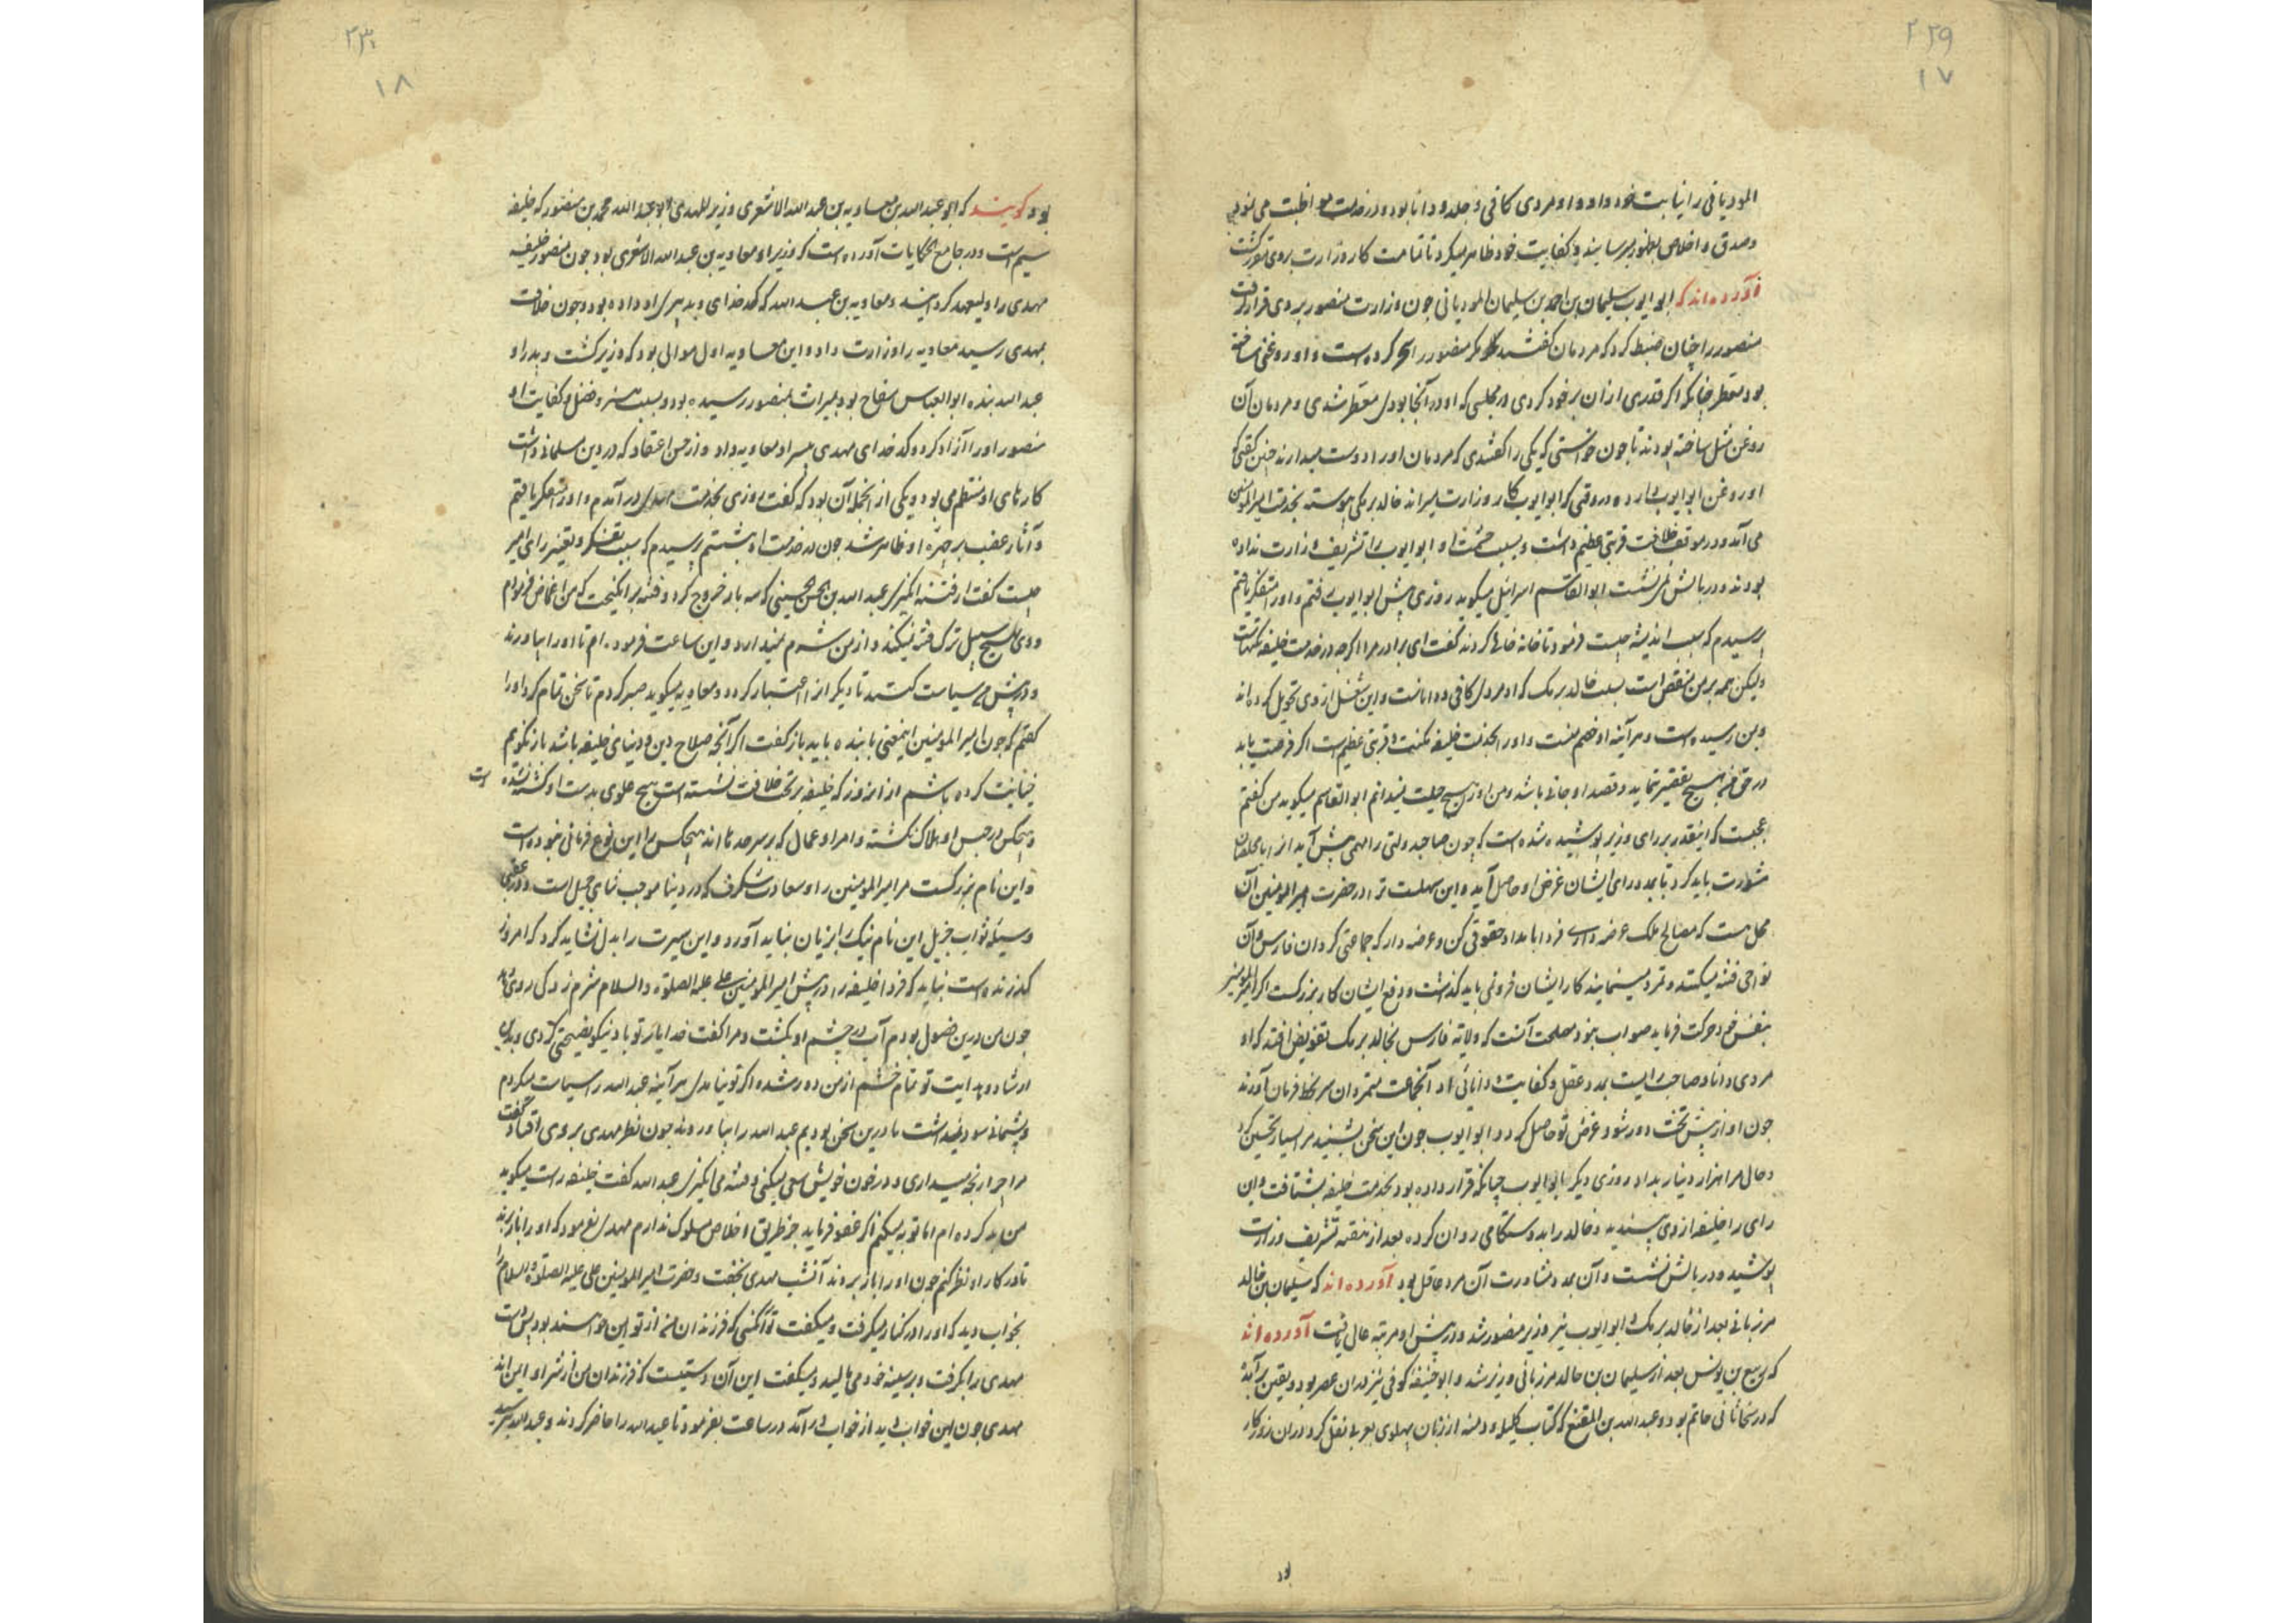 ۲۲۹
۱۷
المودیانی را نیابت خود داد و او مردی کافی و جلد و دانا بود و در خدمت مواظبت می نمود
و صدق و اخلاص بظهور میرسانید و کفایت خود ظاهر میکرد تا تمامت کار وزارت بروی مقرر گشت
آورده‌اند که ابو ایوب سلیمان بن احمد بن سلیمان المودیانی چون وزارت منصور بر وی قرار گرفت
منصور را چنان ضبط کرد که مردمان گفتند که مگر منصور را سحر کرده است و او روغنی ساخته
بود معطر چنانکه اگر قدری از آن بر خود کردی در مجلسی که او در آنجا بودی معطر شدی و مردمان آن
روغن مثل ساخته بودند تا چون خواستی که یکی را گفتندی که مردمان او را دوست میدارند چنین گفتی که
او روغن ابو ایوب دارد در وقتی که ابو ایوب کار وزارت میراند خالد برمکی پیوسته بخدمت امیر المومنین
می آمد و در موقف خلافت قربتی عظیم داشت و بسبب حشمت او ابو ایوب را تشریف وزارت نداده
بودند و در بالش نمی نشست ابو القاسم اسرائیل میگوید روزی پیش ابو ایوب رفتم و او را متفکر یافتم
پرسیدم که سبب اندیشه چیست فرمود تا خانه خالی کردند گفت ای برادر مرا اگرچه در خدمت خلیفه مکنتهاست
ولیکن همه بر من منغص است بسبب خالد برمک که او مردی کافی و داناست و این شغل از وی تحویل کرده اند
و بمن رسیده است و هر آینه او خصم منست و او را بخدمت خلیفه مکنت و قربتی عظیم است اگر فرصت یابد
در حق من هیچ تقصیر ننماید و قصد او جانی باشد و من او را هیچ حیلت نمیدانم ابو القاسم میگوید من گفتم
عجبست که اینقدر بر رای وزیر پوشیده شده است که چون صاحب دولتی را مهمی پیش آید از
مشورت باید کرد تا بمدد رای ایشان غرض او حاصل آید و این سهلست تر در حضرت امیر المومنین آن
محل هست که مصالح ملک عرضه داری فردا بامداد حقوقی کن و عرضه دار که جماعتی کردان فارس و آن
نواحی فتنه میکنند و تمرد مینمایند کار ایشان فرو نمی باید گذاشت و دفع ایشان کار بزرگست اگر امیر المومنین
بنفس خود حرکت فرماید صواب نبود مصلحت آنست که ولایة فارس بخالد برمک تفویض افتد که او
مردی دانا و صاحب رایست بمدد عقل و کفایت و دانائی او آنجماعت متمردان سر بخط فرمان آورند
چون او از پیش تخت دور شود غرض تو حاصل گردد ابو ایوب چون این سخن بشنید مرا بسیار تحسین کرد
و حالی مرا هزار دینار بداد روزی دیگر ابو ایوب چنانکه قرار داده بود بخدمت خلیفه بشتافت و این
رای را خلیفه از وی پسندید و خالد را بدستکامی روان کرد و بعد از هفته تشریف وزارت
پوشید و در بالش نشست و آن بمدد مشاورت آن مرد عاقل بود آورده اند که سلیمان بن خالد
مرزبانی بعد از خالد برمک و ابو ایوب نیز وزیر منصور شد و در پیش او مرتبه عالی یافت آورده اند
که ربیع بن یونس بعد از سلیمان بن خالد مرزبانی وزیر شد و ابو حنیفه کوفی نیز در آن عصر بود و یقین
که در سخا ثانی حاتم بود و عبد الله بن المقفع که کتاب کلیله و دمنه از زبان پهلوی بعربی نقل کرد در آن روزگار
بود
۲۳۰
۱۸
بود گویند که ابو عبد الله بن معاویه بن عبد الله الاشعری وزیر المهدی ابو عبد الله محمد بن منصور که خلیفه
سیم است و در جامع الحکایات آورده است که وزیر او معاویه بن عبد الله الاشعری بود چون منصور خلیفه
مهدی را ولیعهد گردانید و معاویه بن عبد الله که کدخدای و بدبیری او داده بود و چون خلافت
بمهدی رسید معاویه را وزارت داد و این معاویه اول موالی بود که وزیر گشت و پدر او
عبد الله بنده ابو العباس سفاح بود بمیراث بمنصور رسیده بود و بسبب هنر و فضل و کفایت او
منصور او را آزاد کرد و کدخدای مهدی بپسر او معاویه داد و از حسن اعتقاد که در دین مسلمانی داشت
کارهای او منتظم می بود و یکی از آنجمله آن بود که گفت روزی بخدمت مهدی در آمدم و او را متفکر یافتم
و آثار غضب بر چهره او ظاهر شد چون در خدمت او بنشستم پرسیدم که سبب تفکر و تغیر رای امیر
چیست گفت از فتنه انگیزی عبد الله بن الحسن الحسینی که سه بار خروج کرد و فتنه بر انگیخت که من اغماض فرمودم
و وی بهیچ سبیل ترک فتنه نمیکند و از من شرم نمیدارد و این ساعت فرموده ام تا او را بیاورند
و در پیش من سیاست کنند تا دیگران را اعتبار گردد و معاویه میگوید صبر کردم تا سخن تمام کرد او را
گفتم که چون امیر المومنین اینمعنی با بنده باید باز گفت اگر آنچه صلاح دین و دنیای خلیفه باشد باز نگویم
خیانت کرده باشم از آنروز که خلیفه بر تخت خلافت نشسته است هیچ علوی بدست او کشته نشده است
و هیچکس در حبس او هلاک نگشته و امرا و عمال که بر سر حدها اند هیچکس را این نوع فرمانی نبوده است
و این نام بزرگست مر امیر المومنین را و سعادت شگرف که در دنیا موجب ثنای جمیل است و در عقبی
وسیله ثواب جزیل این نام نیک را بزیان نباید آورد و این سیرت را بدل نشاید کرد که امروز
گذرنده است نباید که فردا خلیفه را در پیش امیر المومنین علی علیه الصلوة و السلام شرم زدگی روی دهد
چون من درین فصول بودم آب در چشم او بگشت و مرا گفت خدا یار تو باد نیکو نصیحتی کردی و بدین
ارشاد و هدایت تو تمام خشم از من دور شد و اگر تو نیامدی هر آینه عبد الله را سیاست میکردم
و پشیمانی سود نمیداشت ما درین سخن بودیم عبد الله را بیاوردند چون نظر مهدی بر وی افتاد گفت
مرا چرا رنجه میداری و در خون خویش سعی میکنی و فتنه می انگیزی عبد الله گفت خلیفه راست میگوید
من بد کرده ام اما توبه میکنم اگر عفو فرماید جز طریق اخلاص مسلوک ندارم مهدی بفرمود که او را باز برند
تا در کار او نظر کنم چون او را باز بردند آنشب مهدی بخفت و حضرت امیر المومنین علی علیه الصلوة و السلام را
بخواب دید که او را در کنار میگرفت و میگفت تو آنکسی که فرزندان من از تو این خواهند بود پس دست
مهدی را بگرفت و بر سینه خود می مالید و میگفت این آن دستیست که فرزندان من از شر او ایمن اند
مهدی چون این خواب دید از خواب در آمد در ساعت بفرمود تا عبد الله را حاضر کردند و عبد الله